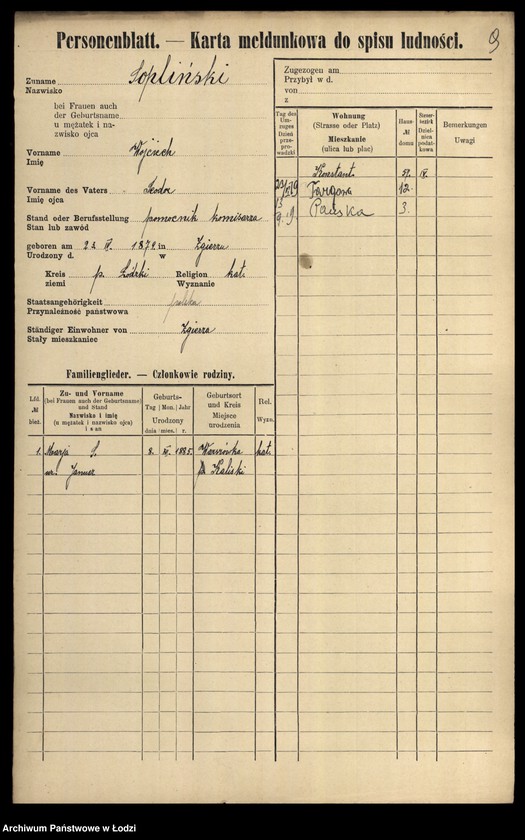 9
Personenblatt. — Karta meldunkowa do spisu ludności.
Zuname Sopliński
Nazwisko
bei Frauen auch
der Geburtsname
u mężatek i na-
zwisko ojca
Vorname Wojciech
Imię
Vorname des Vaters
Imię ojca
Stand oder Berufsstellung pomocnik komisarza
Stan lub zawód
geboren am 23 IV. 1879 in Zgierzu
Urodzony d. w
Kreis p. Łódzki Religion kat.
ziemi Wyznanie
Staatsangehörigkeit polska
Przynależność państwowa
Ständiger Einwohner von Zgierza
Stały mieszkaniec
Zugezogen am
Przybył w d.
von
z
Tag des Um-zuges Dzień prze-prowadzki
Wohnung (Strasse oder Platz) Mieszkanie (ulica lub plac)
Haus-№ domu
Steuer-bezirk Dzielnica podatkowa
Bemerkungen Uwagi
Konstant. IV.
Targowa 12.
Pańska 3.
Familienglieder. — Członkowie rodziny.
Lfd. № bież.
Zu- und Vorname (bei Frauen auch der Geburtsname) und Stand Nazwisko i imię (u mężatek i nazwisko ojca) i stan
Geburts- Tag Mon. Jahr Urodzony dnia mies. r.
Geburtsort und Kreis Miejsce urodzenia
Rel. Wyzn.
1. Marja S. 8. 1885. kat.
ur. Kaliski
Archiwum Państwowe w Łodzi